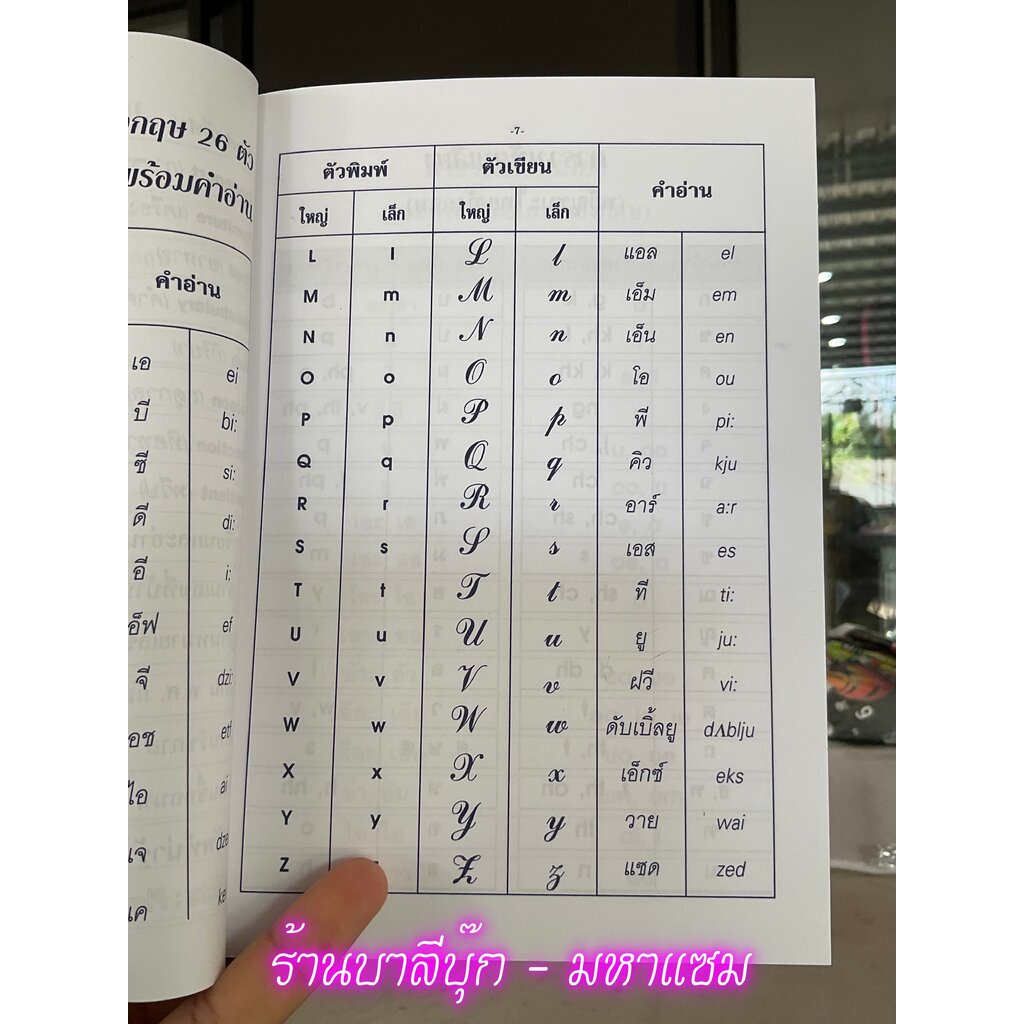 26 ตัว
พร้อมคำอ่าน
คำอ่าน
เอ ei
บี bi:
ซี si:
ดี di:
อี i:
ef
จี dzi:
ai
-7-
ตัวพิมพ์ ตัวเขียน คำอ่าน
ใหญ่ เล็ก ใหญ่ เล็ก
L l L l แอล el
M m M m เอ็ม em
N n N n เอ็น en
O o O o โอ ou
P p P p พี pi:
Q q Q q คิว kju
R r R r อาร์ a:r
S s S s เอส es
T t T t ที ti:
U u U u ยู ju:
V v V v ฝวี vi:
W w W w ดับเบิ้ลยู dʌblju
X x X x เอ็กซ์ eks
Y y Y y วาย wai
Z Z z แซด zed
ร้านบาลีบุ๊ก - มหาแซม